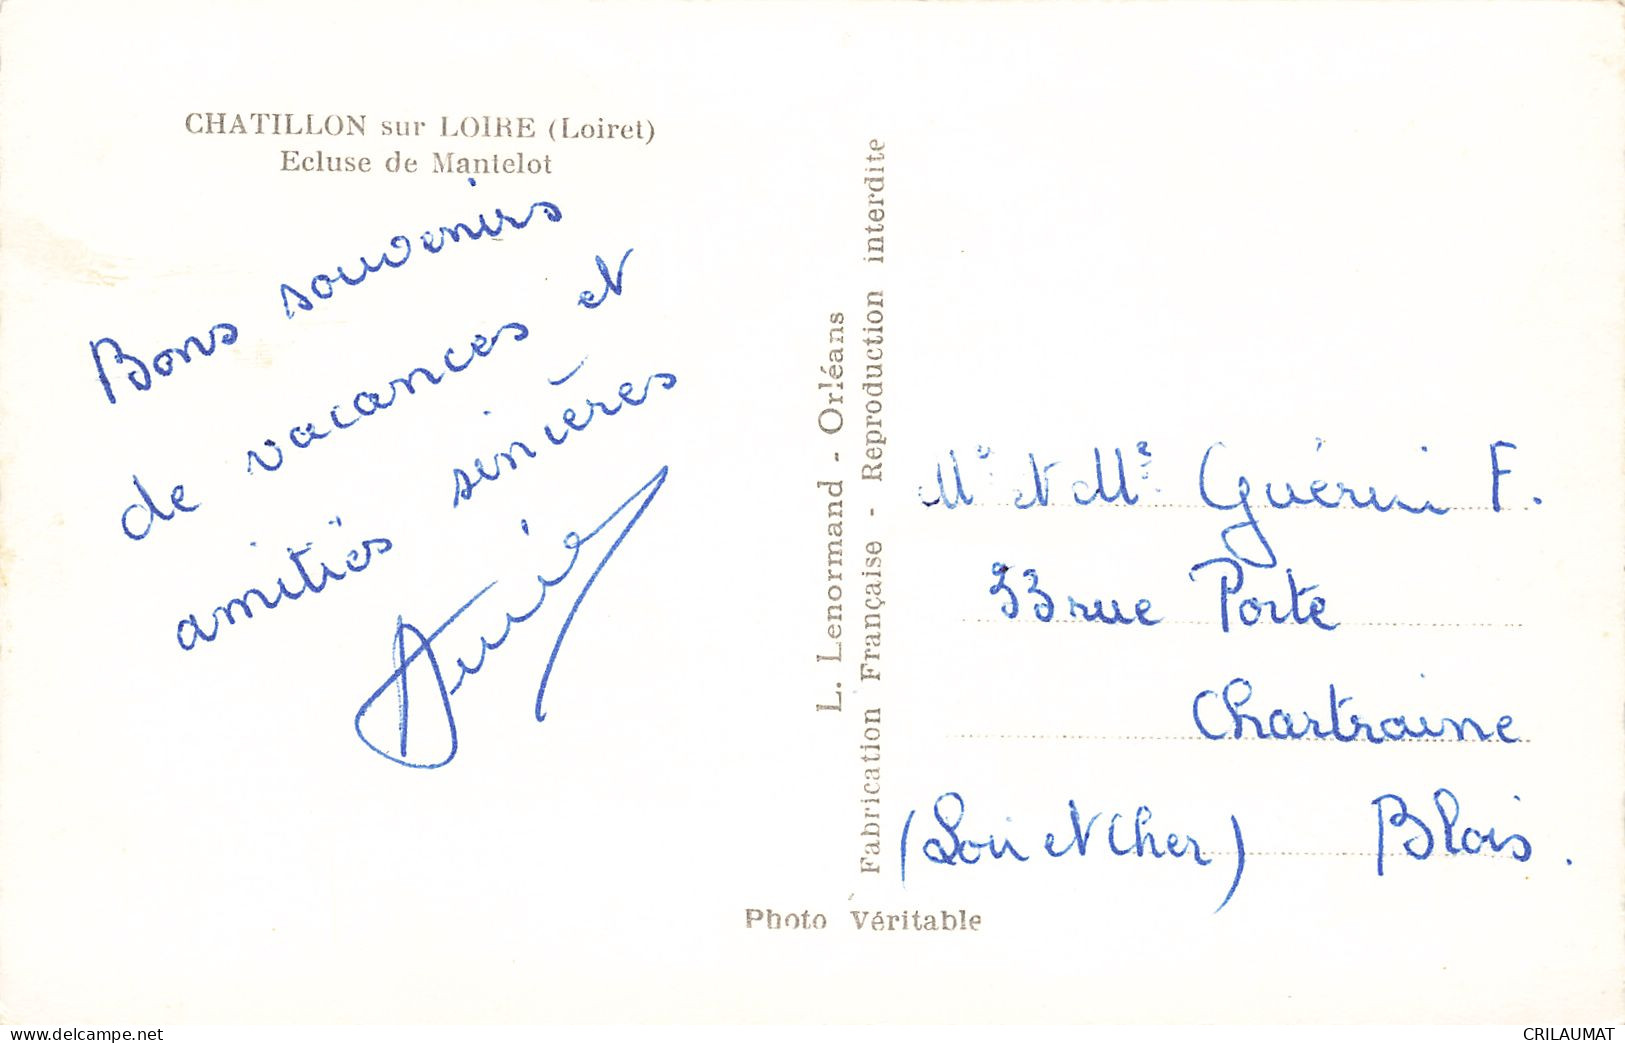 CHATILLON sur LOIRE (Loiret)
Ecluse de Mantelot
Bons souvenirs
de vacances et
amitiés sincères
L. Lenormand - Orléans
Fabrication Française - Reproduction interdite
Photo Véritable
Mr et Me Guérin F.
33 rue Porte
Chartraine
(Loir et Cher) Blois.
www.delcampe.net
CRILAUMAT